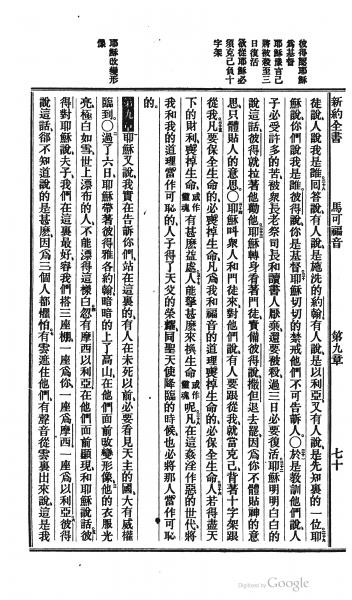 新約全書　馬可福音　第九章　七十
彼得認耶穌
為基督
耶穌豫言己
將被殺至三
日復活
欲從耶穌必
須克己負十
字架
耶穌改變形
像
徒說人說我是誰回答說有人說是施洗的約翰有人說是以利亞又有人說是先知裏的一位耶
穌說你們說我是誰彼得說你是基督耶穌切切的禁戒他們不可告訴人〇於是教訓他們說人
子必受許多的苦被衆長老祭司長和讀書人厭棄還要被殺過三日必要復活耶穌明明白白的
說這話彼得就拉著他勸他耶穌轉身看著門徒責備彼得說撒但退去罷因為你不體貼神的意
思只體貼人的意思〇耶穌叫衆人和門徒來對他們說有人要跟從我就當克己背著十字架跟
從我凡要保全生命的必喪掉生命凡為我和福音的道理喪掉生命的必保全生命人若得盡天
下的財利喪掉生命或作靈魂有甚麼益處人能拏甚麼來換生命或作靈魂呢凡在這姦淫作惡的世代將
我和我的道理當作可恥的人子得了天父的榮耀同聖天使降臨的時候也必將那人當作可恥
的
第九章耶穌又說我實在告訴你們站在這裏的有人在未死以前必要看見天主的國大有威權
臨到〇過了六日耶穌帶著彼得雅各約翰暗暗的上了高山在他們面前改變形像他的衣服光
亮極白如雪世上漂布的人不能漂得這樣白忽有摩西以利亞在他們面前顯現和耶穌說話彼
得對耶穌說夫子我們在這裏最好容我們搭三座棚一座為你一座為摩西一座為以利亞彼得
說這話卻不知道說的是甚麼因為三個人都懼怕有雲遮住他們有聲音從雲裏出來說這是我
Digitized by Google